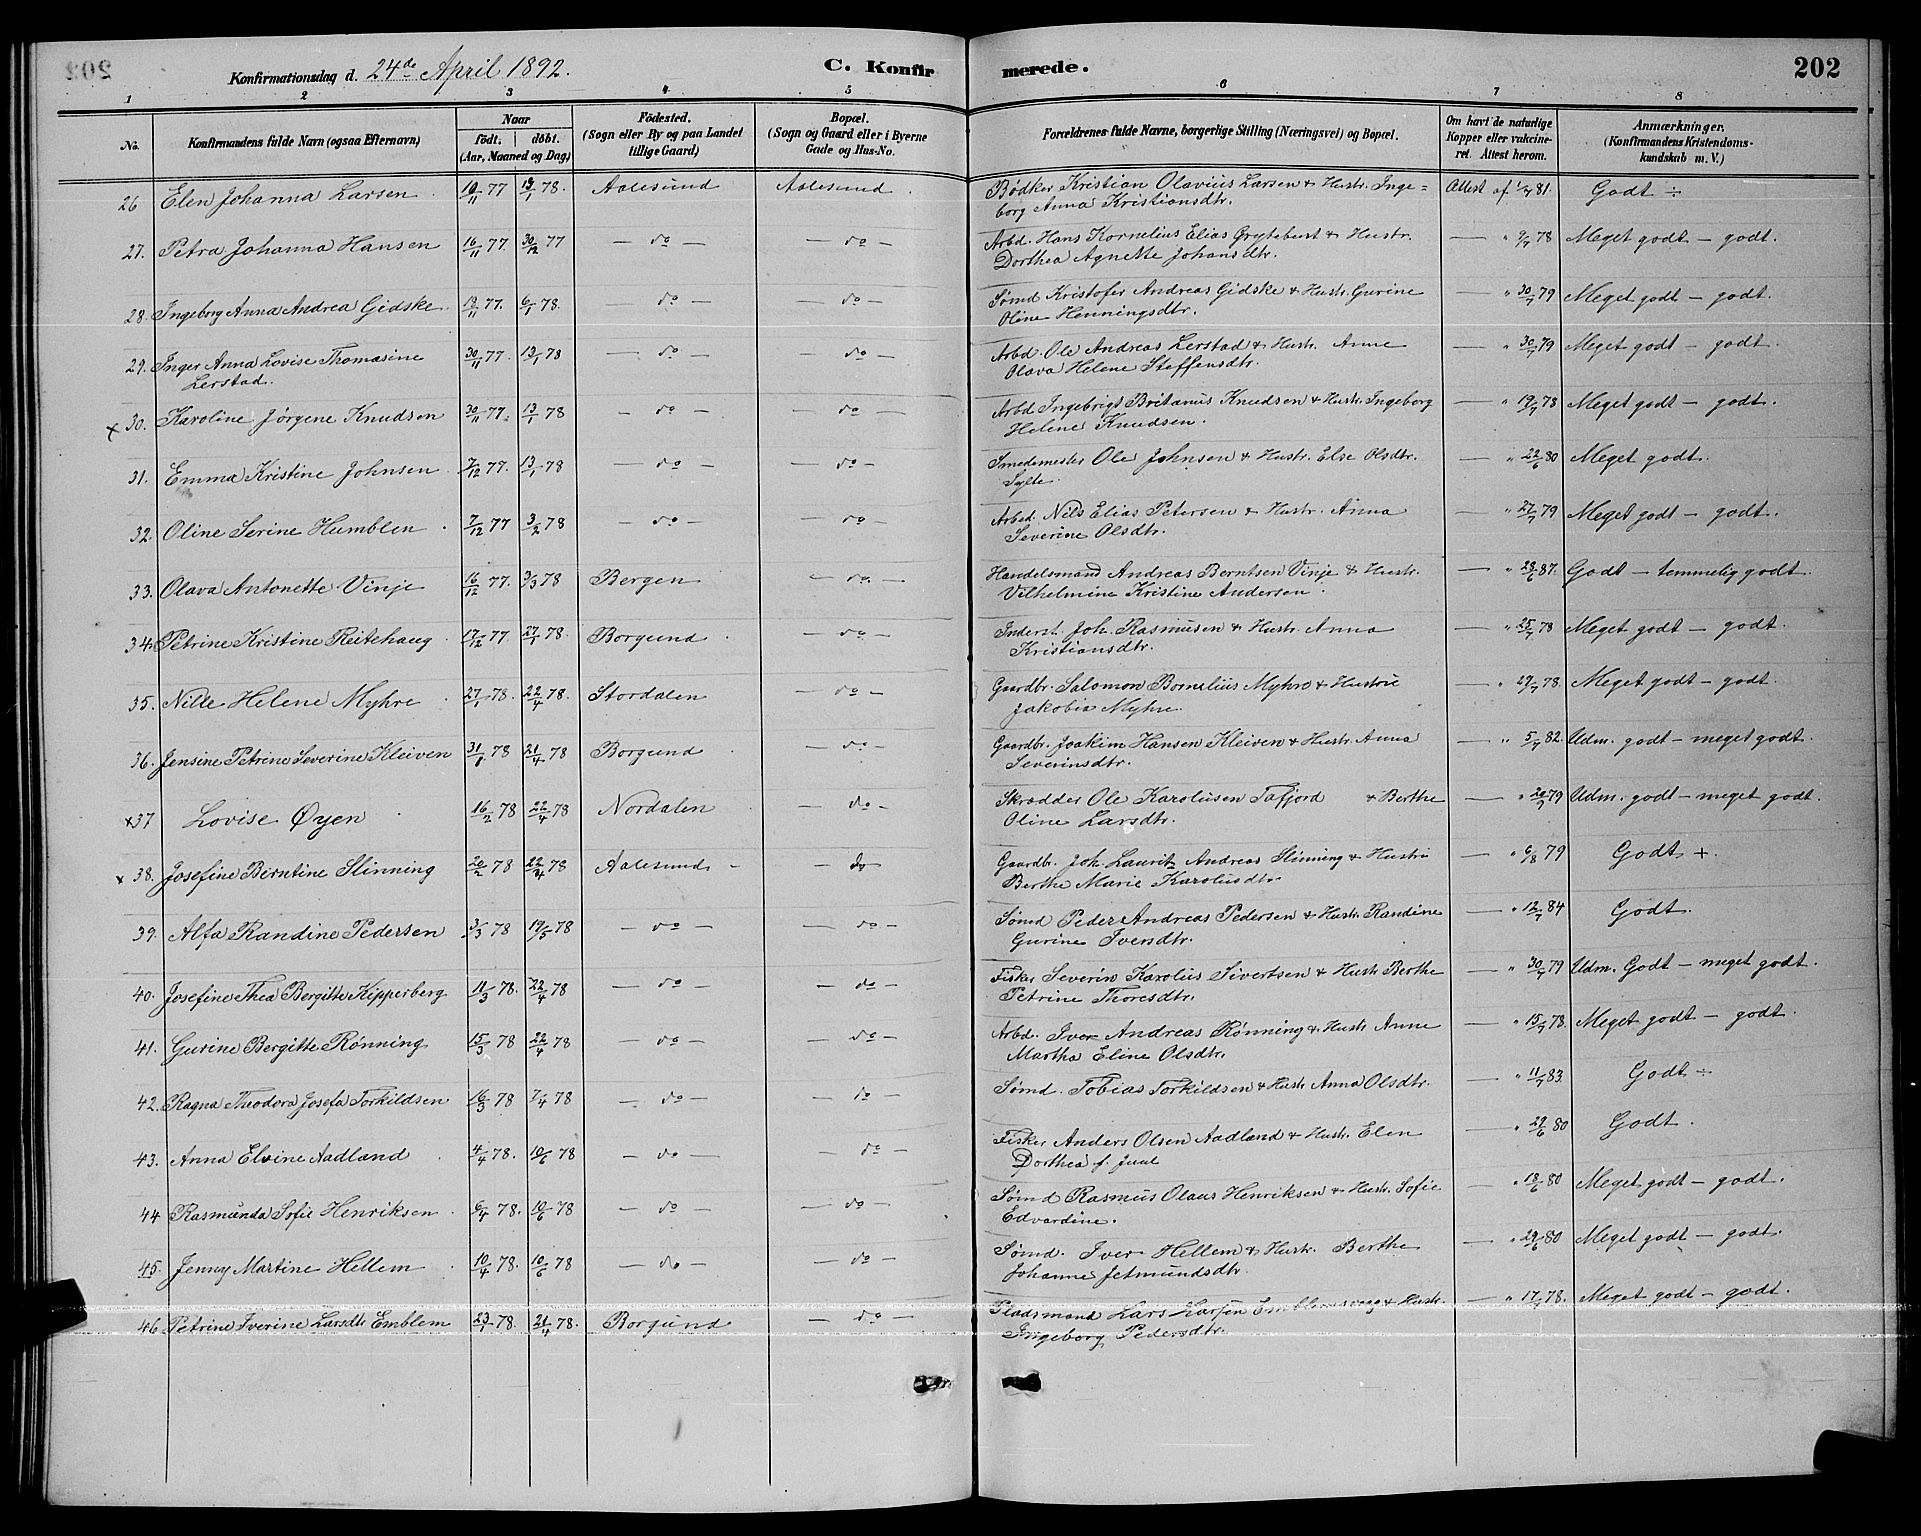 Konfirmationsdag d. 24de April 1892. C. Konfirmerede. 202
1 2 3 4 5 6 7 8
No. Konfirmandens fulde Navn (ogsaa Efternavn) Naar födt. döbt. (Aar, Maaned og Dag) Födested. (Sogn eller By og paa Landet tillige Gaard) Bopæl. (Sogn og Gaard eller i Byerne Gade og Hus-No. Forældrenes fulde Navne, borgerlige Stilling (Næringsvei) og Bopæl. Om havt de naturlige Kopper eller vakcineret. Attest herom. Anmærkninger. (Konfirmandens Kristendomskundskab m. V.)
26 Elen Johanna Larsen 10/11 77 13/1 78. Aalesund Aalesund Bødker Kristian Olavius Larsen & Hustr. Inge=
borg Anna Kristiansdtr. Attest af 81. Godt ÷
27. Petra Johanna Hansen 16/11 77. 30/12 77 — do — — do — Arbd. Hans Kornelius Elias & Hustr.
Dorthea Agnette Johansdtr. — " 9/7 78 Meget godt — godt.
28. Ingeborg Anna Andrea Gidske 77. 6/1 78. — do — — do — Sømd Kristofer Andreas Gidske & Hustr. Gurine
Oline Henningsdtr. — " 30/7 79 Meget godt — godt.
29. Inger Anna Lovise Thomasine
Lerstad. 30/11 77. 13/1 78 — do — — do — Arbd Ole Andreas Lerstad & Hustr. Anne
Olava Helene Steffensdtr. — " 30/7 79 Meget godt — godt.
x 30. Karoline Jørgene Knudsen 30/11 77. 13/1 78 — do — — do Arbd Ingebrigt Britanus Knudsen & Hustr. Ingeborg
Helene Knudsen. — " 19/7 78 Meget godt — godt.
31. Emma Kristine Johnsen 7/12 77. 13/1 78 — do — — do — Smedemester Ole Johnsen & Hustr. Else Olsdtr.
Sylte. — " 22/6 80 Meget godt.
32. Oline Serine Humblen 7/12 77 3/2 78 — do — — do — Arbed. Nils Elias Petersen & Hustr. Anna
Severine Olsdtr. — " 27/7 79 Meget godt — godt.
33. Olava Antonette Vinje 16/12 77. 3/3 78 Bergen — do. — Handelsmand Andreas Berntsen Vinje & Hustr.
Vilhelmine Kristine Andersen. — " 28/6 87. Godt — temmelig godt.
34. Petrine Kristine Reitehaug 17/12 77 27/1 78. Borgund — do — Inderst. Joh. Rasmusen & Hustr. Anna
Kristiansdtr. — " 25/7 78 Meget godt — godt.
35. Nille Helene Myhre 27/1 78. 22/4 78. Stordalen — do — Gaardbr. Salomon Bornelius Myhre & Hustru
Jakobia Myhre. — " 29/7 78 Meget godt — godt.
36. Jensine Petrine Severine Kleiven 31/1 78 21/4 78 Borgund — do — Gaardbr. Joakim Hansen Kleiven & Hustr. Anna
Severinsdtr. — " 5/7 82. Udm. godt — meget godt.
x37 Lovise Øyen 16/2 78 22/4 78 Nordalen — do — Skrædder Ole Karolusen Tafjord & Berthe
Oline Larsdtr. — " 79 Udm. godt — meget godt.
x 38. Josefine Berntine Slinning 20/2 78 22/4 78 Aalesund — — do Gaardbr. Joh. Laurits Andreas Slinning & Hustru
Berthe Marie Karolusdtr. — " 6/8 79 Godt +.
39. Alfa Randine Pedersen 3/3 78 19/5 78 — do — — do — Sømd Peder Andreas Pedersen & Hustr. Randine
Gurine Iversdtr. — " 12/7 84 Godt.
40. Josefine Thea Bergitte Kipperberg 11/3 78. 22/4 78 — do — — do — Fisker Severin Karolius Sivertsen & Hustr Berthe
Petrine Thoresdtr. — " 30/7 79 Udm. Godt — meget godt.
41. Gurine Bergitte Rønning 15/3 78 22/4 78 — do — — do — Arbd. Iver Andreas Rønning & Hustr Anne
Martha Eline Olsdtr. — " 15/7 78. Meget godt — godt.
42. Ragna Theodora Josefa Torkildsen 16/3 78 7/4 78 — do — — do — Sømd. Tobias Torkildsen & Hustr Anna Olsdtr. — " 11/7 83. Godt ÷
43. Anna Elvine Aadland 4/4 78. 10/6 78 — do — — do — Fisker Anders Olsen Aadland & Hustr. Elen
Dorthea f. Juul — " 29/6 80 Godt.
44 Rasmunda Sofie Henriksen 6/4 78. 10/6 78 — do — — do — Sømd Rasmus Olaus Henriksen & Hustr. Sofie
Edvardine. " 18/6 80 Meget godt — godt.
45. Jenny Martine Hellem 10/4 78. 10/6 78 — do — — do Sømd. Iver Hellem & Hustr. Berthe
Johanne Jetmundsdtr. — " 29/6 80 Meget godt — godt.
46. Petrine Iverine Larsdtr Emblem 23/1 78. 21/4 78. Borgund — do — Pladsmand Lars Larsen Emblemsvaag & Hustr.
Ingeborg Pedersdtr. — " 17/7 78. Meget godt — godt.